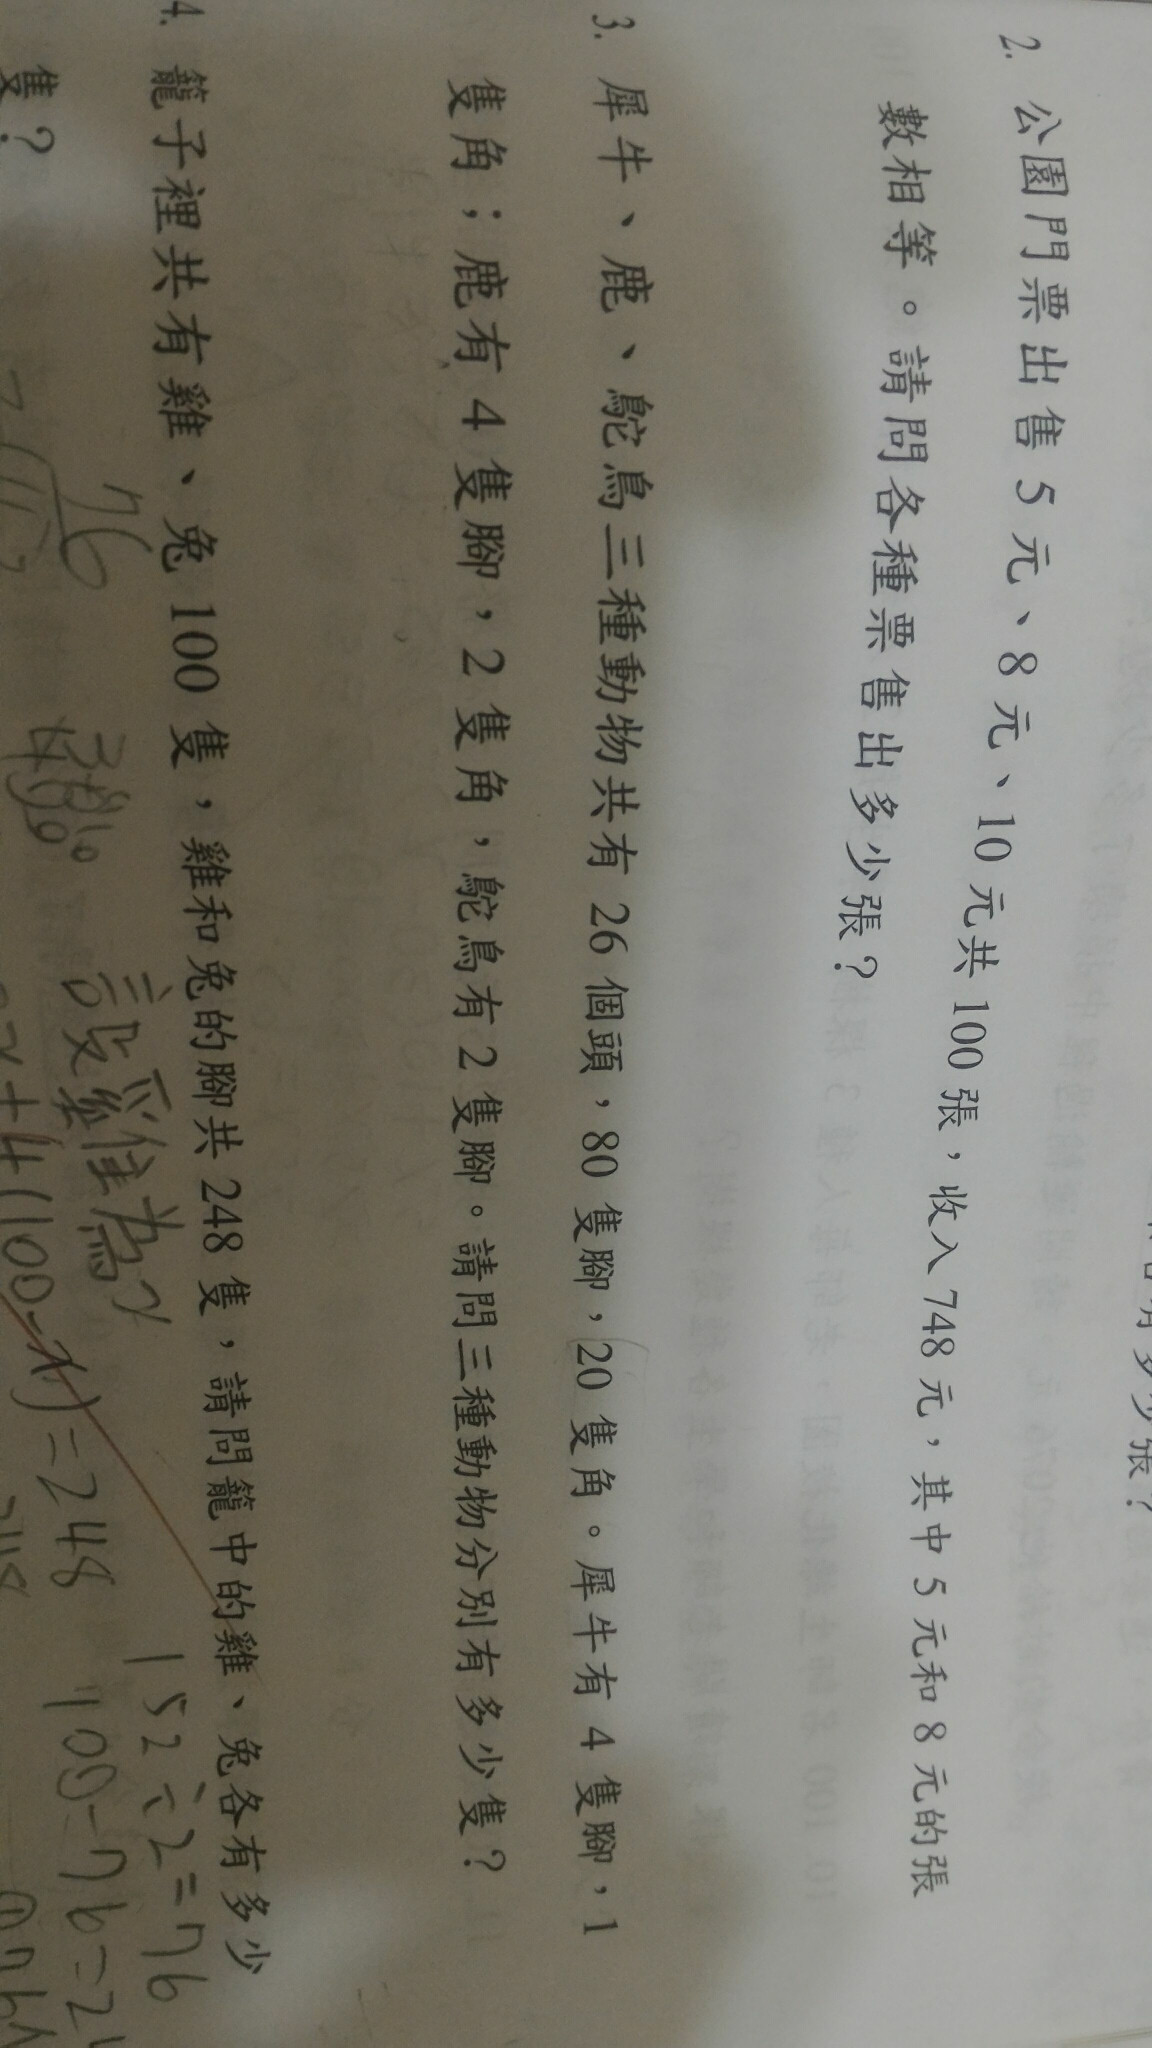 有多少張？
2. 公園門票出售 5 元、8 元、10 元共 100 張，收入 748 元，其中 5 元和 8 元的張
數相等。請問各種票售出多少張？
3. 犀牛、鹿、鴕鳥三種動物共有 26 個頭，80 隻腳，20 隻角。犀牛有 4 隻腳，1
隻角；鹿有 4 隻腳，2 隻角，鴕鳥有 2 隻腳。請問三種動物分別有多少隻？
4. 籠子裡共有雞、兔 100 隻，雞和兔的腳共 248 隻，請問籠中的雞、兔各有多少
隻？
76
152÷2=76
設雞為x
100-76=2
+4(100-x)=248